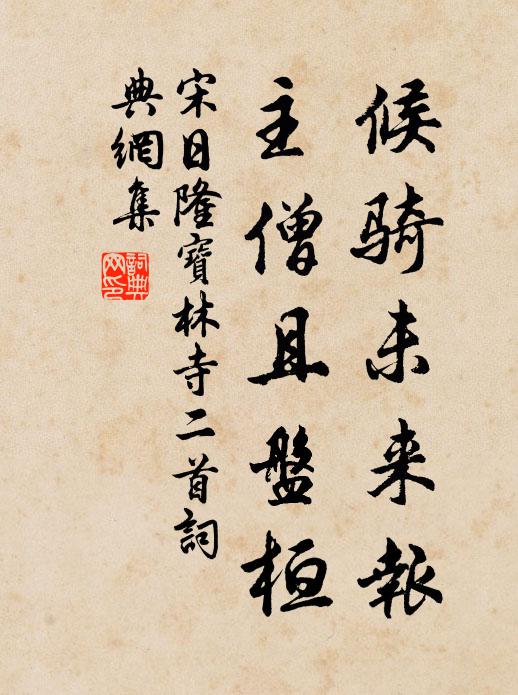 候骑未来報
主僧且盤桓
宋日隆寶林寺二首詞
典網集
詞典網印